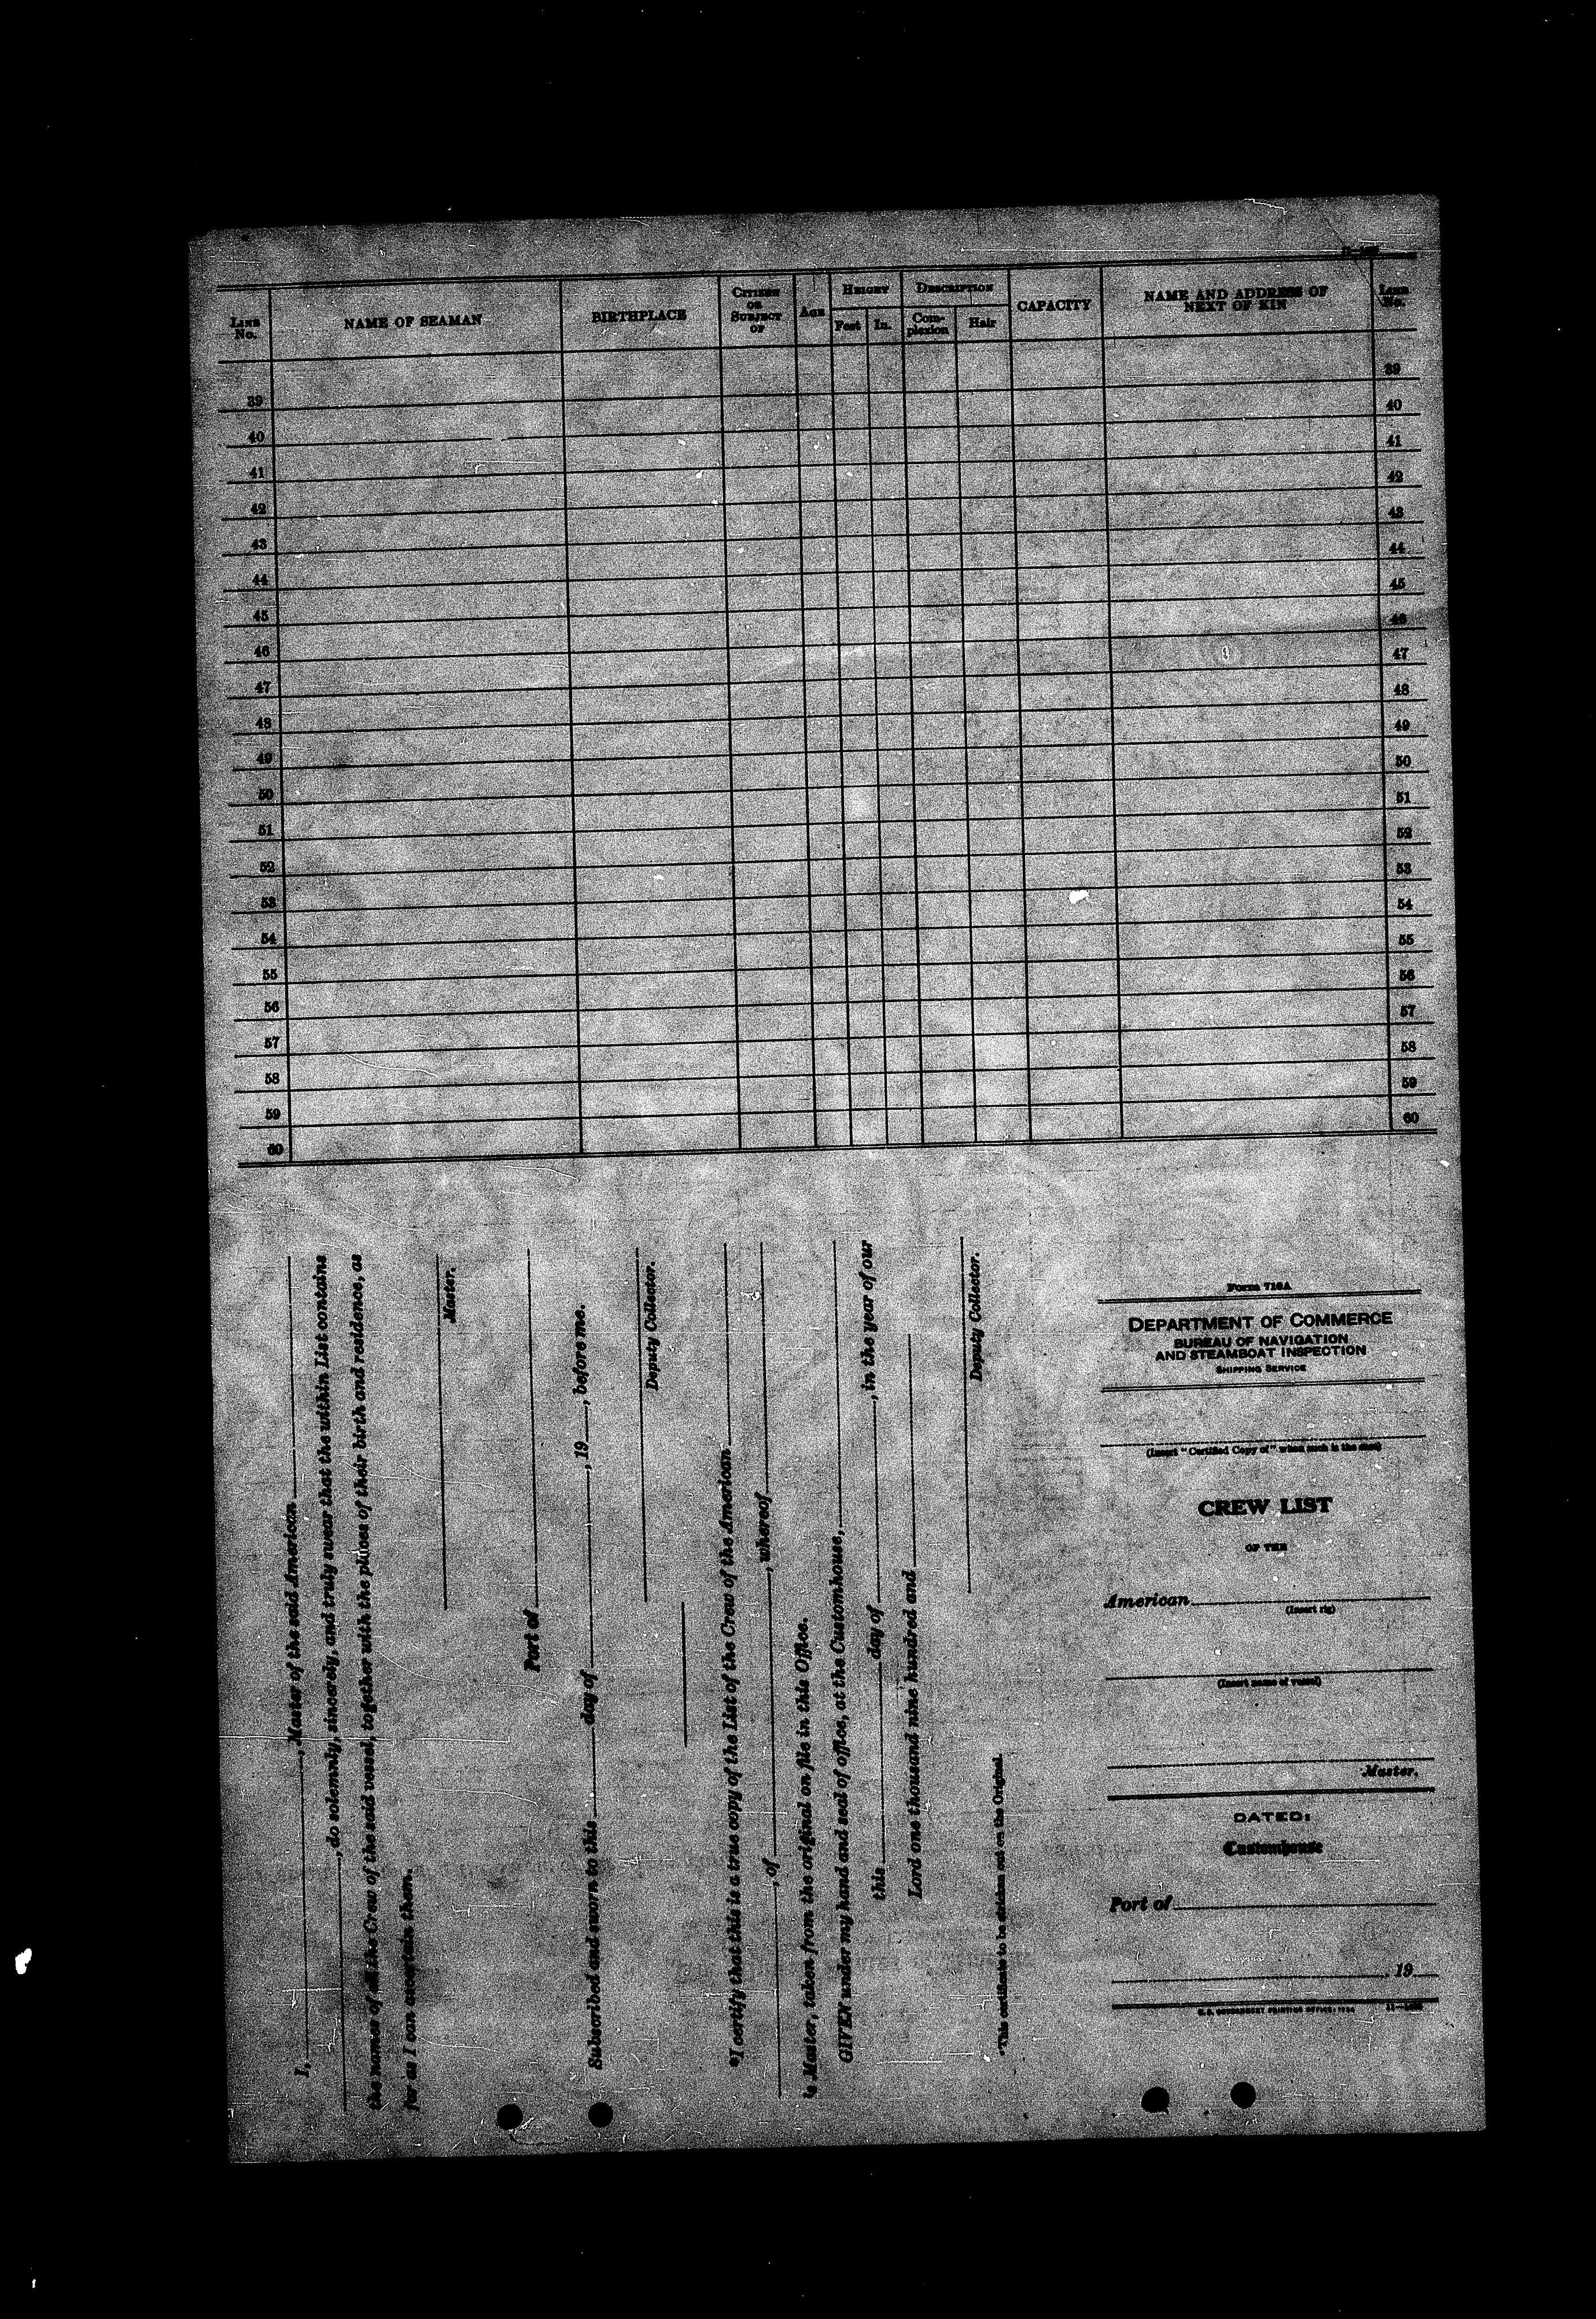 LINE No.
NAME OF SEAMAN
BIRTHPLACE
CITIZEN OR SUBJECT OF
AGE
HEIGHT
Feet
In.
DESCRIPTION
Com-
plexion
Hair
CAPACITY
NAME AND ADDRESS OF
NEXT OF KIN
LINE No.
39 39
40 40
41 41
42 42
43 43
44 44
45 45
46 46
47 47
48 48
49 49
50 50
51 51
52 52
53 53
54 54
55 55
56 56
57 57
58 58
59 59
60 60
I, , Master of the said American
, do solemnly, sincerely, and truly swear that the within List contains
the names of all the Crew of the said vessel, together with the places of their birth and residence, as
far as I can ascertain them.
Master.
Port of
Subscribed and sworn to this day of , 19 , before me.
Deputy Collector.
*I certify that this is a true copy of the List of the Crew of the American
, of , whereof
is Master, taken from the original on file in this Office.
GIVEN under my hand and seal of office, at the Customhouse,
this day of , in the year of our
Lord one thousand nine hundred and
Deputy Collector.
*This certificate to be stricken out on the Original.
Form 710A
DEPARTMENT OF COMMERCE
BUREAU OF NAVIGATION
AND STEAMBOAT INSPECTION
SHIPPING SERVICE
(Insert "Certified Copy of" when such is the case)
CREW LIST
OF THE
American
(Insert rig)
(Insert name of vessel)
Master.
DATED:
Customhouse
Port of
, 19
U.S. GOVERNMENT PRINTING OFFICE: 1934